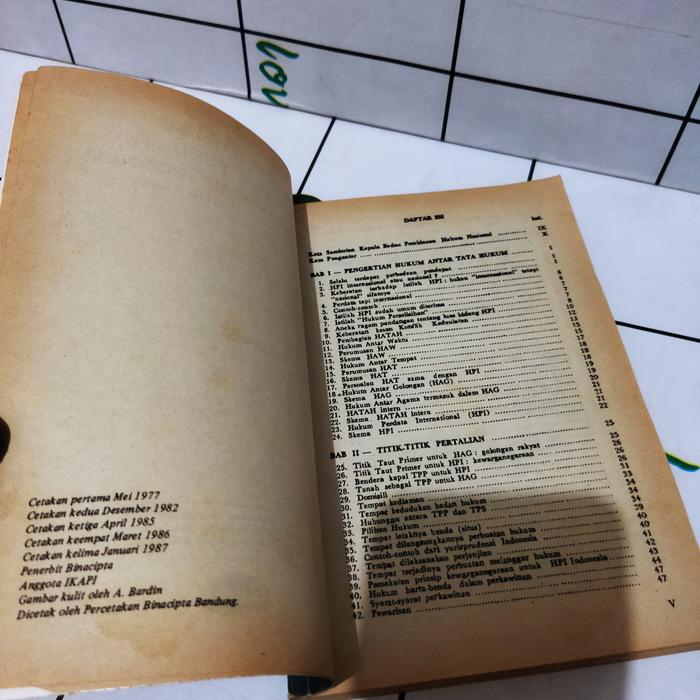 lov
Cetakan pertama Mei 1977
Cetakan kedua Desember 1982
Cetakan ketiga April 1985
Cetakan keempat Maret 1986
Cetakan kelima Januari 1987
Penerbit Binacipta
Anggota IKAPI
Gambar kulit oleh A. Bardin
Dicetak oleh Percetakan Binacipta Bandung.
DAFTAR ISI
hal.
Kata Sambutan Kepala Badan Pembinaan Hukum Nasional IX
Kata Pengantar X
BAB I — PENGERTIAN HUKUM ANTAR TATA HUKUM 1
1. Selalu terdapat perbedaan pendapat
2. HPI internasional atau nasional?
3. Keberatan terhadap istilah HPI: hukum "internasional" tetapi
"nasional" sifatnya
4. Perdata tapi internasional
5. Contoh-contoh
6. Istilah HPI sudah umum diterima
7. Istilah "Hukum Perselisihan"
8. Aneka ragam pandangan tentang luas bidang HPI
9. Keberatan
10. Pembagian HATAH
11. Hukum Antar Waktu
12. Perumusan HAW
13. Skema HAW
14. Hukum Antar Tempat
15. Perumusan HAT
16. Skema HAT
17. Persoalan HAT sama dengan HPI
18. Hukum Antar Golongan (HAG)
19. Skema HAG
20. Hukum Antar Agama termasuk dalam HAG
21. HATAH intern
22. Skema HATAH intern
23. Hukum Perdata Internasional (HPI)
24. Skema HPI 22
BAB II — TITIK-TITIK PERTALIAN 25
25. Titik Taut Primer untuk HAG: golongan rakyat
26. Titik Taut Primer untuk HPI: kewarganegaraan
27. Bendera kapal TPP untuk HPI
28. Tanah sebagai TPP untuk HAG
29. Domisili
30. Tempat kediaman
31. Tempat kedudukan badan hukum
32. Hubungan antara TPP dan TPS
33. Pilihan Hukum
34. Tempat letaknya benda (situs)
35. Tempat dilangsungkannya perbuatan hukum
36. Contoh-contoh dari yurisprudensi Indonesia
37. Tempat dilaksanakan perjanjian
38. Tempat terjadinya perbuatan melanggar hukum
39. Pemakaian prinsip kewarganegaraan untuk HPI Indonesia
40. Hukum harta-benda dalam perkawinan
41. Syarat-syarat perkawinan 47
42. Pewarisan 47
V